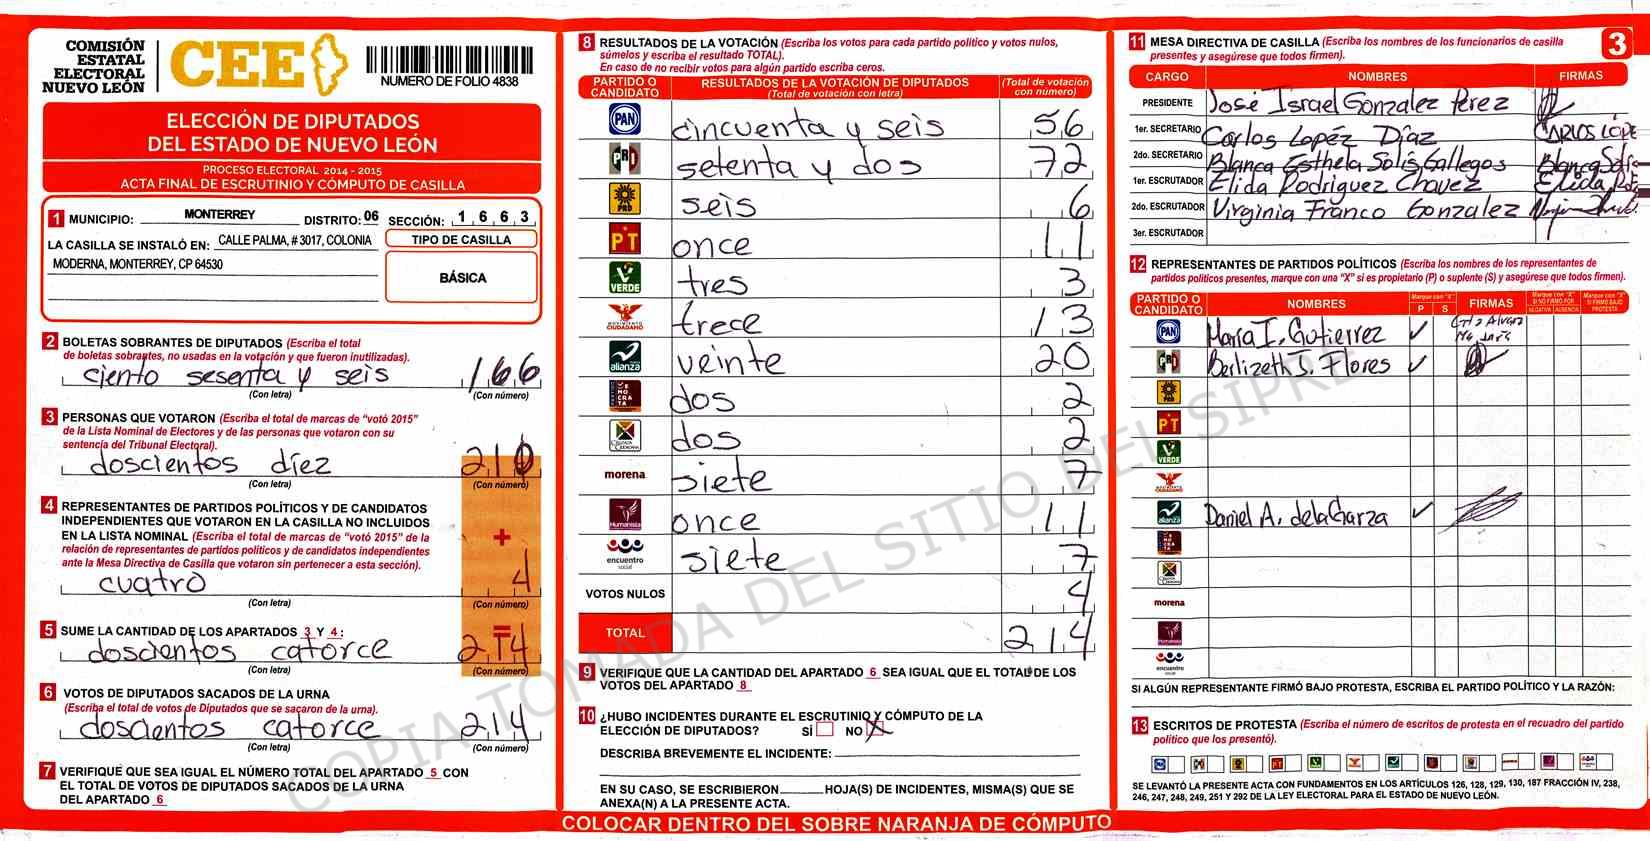 COMISIÓN
ESTATAL
ELECTORAL
NUEVO LEÓN
CEE
NUMERO DE FOLIO 4838
ELECCIÓN DE DIPUTADOS
DEL ESTADO DE NUEVO LEÓN
PROCESO ELECTORAL 2014 - 2015
ACTA FINAL DE ESCRUTINIO Y CÓMPUTO DE CASILLA
1 MUNICIPIO: MONTERREY DISTRITO: 06 SECCIÓN: 1 6 6 3
LA CASILLA SE INSTALÓ EN: CALLE PALMA, # 3017, COLONIA
MODERNA, MONTERREY, CP 64530
TIPO DE CASILLA
BÁSICA
2 BOLETAS SOBRANTES DE DIPUTADOS (Escriba el total
de boletas sobrantes, no usadas en la votación y que fueron inutilizadas).
ciento sesenta y seis 166
(Con letra) (Con número)
3 PERSONAS QUE VOTARON (Escriba el total de marcas de "votó 2015"
de la Lista Nominal de Electores y de las personas que votaron con su
sentencia del Tribunal Electoral).
doscientos diez 210
(Con letra) (Con número)
4 REPRESENTANTES DE PARTIDOS POLÍTICOS Y DE CANDIDATOS
INDEPENDIENTES QUE VOTARON EN LA CASILLA NO INCLUIDOS
EN LA LISTA NOMINAL (Escriba el total de marcas de "votó 2015" de la
relación de representantes de partidos políticos y de candidatos independientes
ante la Mesa Directiva de Casilla que votaron sin pertenecer a esta sección).
+
cuatro 4
(Con letra) (Con número)
5 SUME LA CANTIDAD DE LOS APARTADOS 3 Y 4: =
doscientos catorce 214
(Con letra) (Con número)
6 VOTOS DE DIPUTADOS SACADOS DE LA URNA
(Escriba el total de votos de Diputados que se sacaron de la urna).
doscientos catorce 214
(Con letra) (Con número)
7 VERIFIQUE QUE SEA IGUAL EL NÚMERO TOTAL DEL APARTADO 5 CON
EL TOTAL DE VOTOS DE DIPUTADOS SACADOS DE LA URNA
DEL APARTADO 6
8 RESULTADOS DE LA VOTACIÓN (Escriba los votos para cada partido político y votos nulos,
súmelos y escriba el resultado TOTAL).
En caso de no recibir votos para algún partido escriba ceros.
PARTIDO O CANDIDATO RESULTADOS DE LA VOTACIÓN DE DIPUTADOS (Total de votación con letra) (Total de votación con número)
PAN cincuenta y seis 56
PRI setenta y dos 72
PRD seis 6
PT once 11
VERDE tres 3
MOVIMIENTO CIUDADANO trece 13
alianza veinte 20
DEMOCRATA dos 2
CRUZADA CIUDADANA dos 2
morena siete 7
Humanista once 11
encuentro social siete 7
VOTOS NULOS 4
TOTAL 214
9 VERIFIQUE QUE LA CANTIDAD DEL APARTADO 6 SEA IGUAL QUE EL TOTAL DE LOS
VOTOS DEL APARTADO 8
10 ¿HUBO INCIDENTES DURANTE EL ESCRUTINIO Y CÓMPUTO DE LA
ELECCIÓN DE DIPUTADOS? SÍ NO X
DESCRIBA BREVEMENTE EL INCIDENTE:
EN SU CASO, SE ESCRIBIERON HOJA(S) DE INCIDENTES, MISMA(S) QUE SE
ANEXA(N) A LA PRESENTE ACTA.
COLOCAR DENTRO DEL SOBRE NARANJA DE CÓMPUTO
11 MESA DIRECTIVA DE CASILLA (Escriba los nombres de los funcionarios de casilla
presentes y asegúrese que todos firmen).
3
CARGO NOMBRES FIRMAS
PRESIDENTE José Israel Gonzalez Perez
1er. SECRETARIO Carlos Lopéz Díaz CARLOS LÓPE
2do. SECRETARIO Blanca Esthela Solis Gallegos Blanca
1er. ESCRUTADOR Elida Rodriguez Chavez Elida
2do. ESCRUTADOR Virginia Franco Gonzalez
3er. ESCRUTADOR
12 REPRESENTANTES DE PARTIDOS POLÍTICOS (Escriba los nombres de los representantes de
partidos políticos presentes, marque con una "X" si es propietario (P) o suplente (S) y asegúrese que todos firmen).
PARTIDO O CANDIDATO NOMBRES Marque con "X" P S FIRMAS Marque con "X" SI NO FIRMÓ POR NEGATIVA AUSENCIA Marque con "X" SI FIRMÓ BAJO PROTESTA
PAN María I. Gutierrez ✓
PRI Berlizeth J. Flores ✓
PRD
PT
VERDE
MOVIMIENTO CIUDADANO
alianza Daniel A. de la Garza ✓
DEMOCRATA
CRUZADA CIUDADANA
morena
Humanista
encuentro social
SI ALGÚN REPRESENTANTE FIRMÓ BAJO PROTESTA, ESCRIBA EL PARTIDO POLÍTICO Y LA RAZÓN:
13 ESCRITOS DE PROTESTA (Escriba el número de escritos de protesta en el recuadro del partido
político que los presentó).
SE LEVANTÓ LA PRESENTE ACTA CON FUNDAMENTOS EN LOS ARTÍCULOS 126, 128, 129, 130, 187 FRACCIÓN IV, 238,
246, 247, 248, 249, 251 Y 292 DE LA LEY ELECTORAL PARA EL ESTADO DE NUEVO LEÓN.
COPIA TOMADA DEL SITIO DEL SIPRE